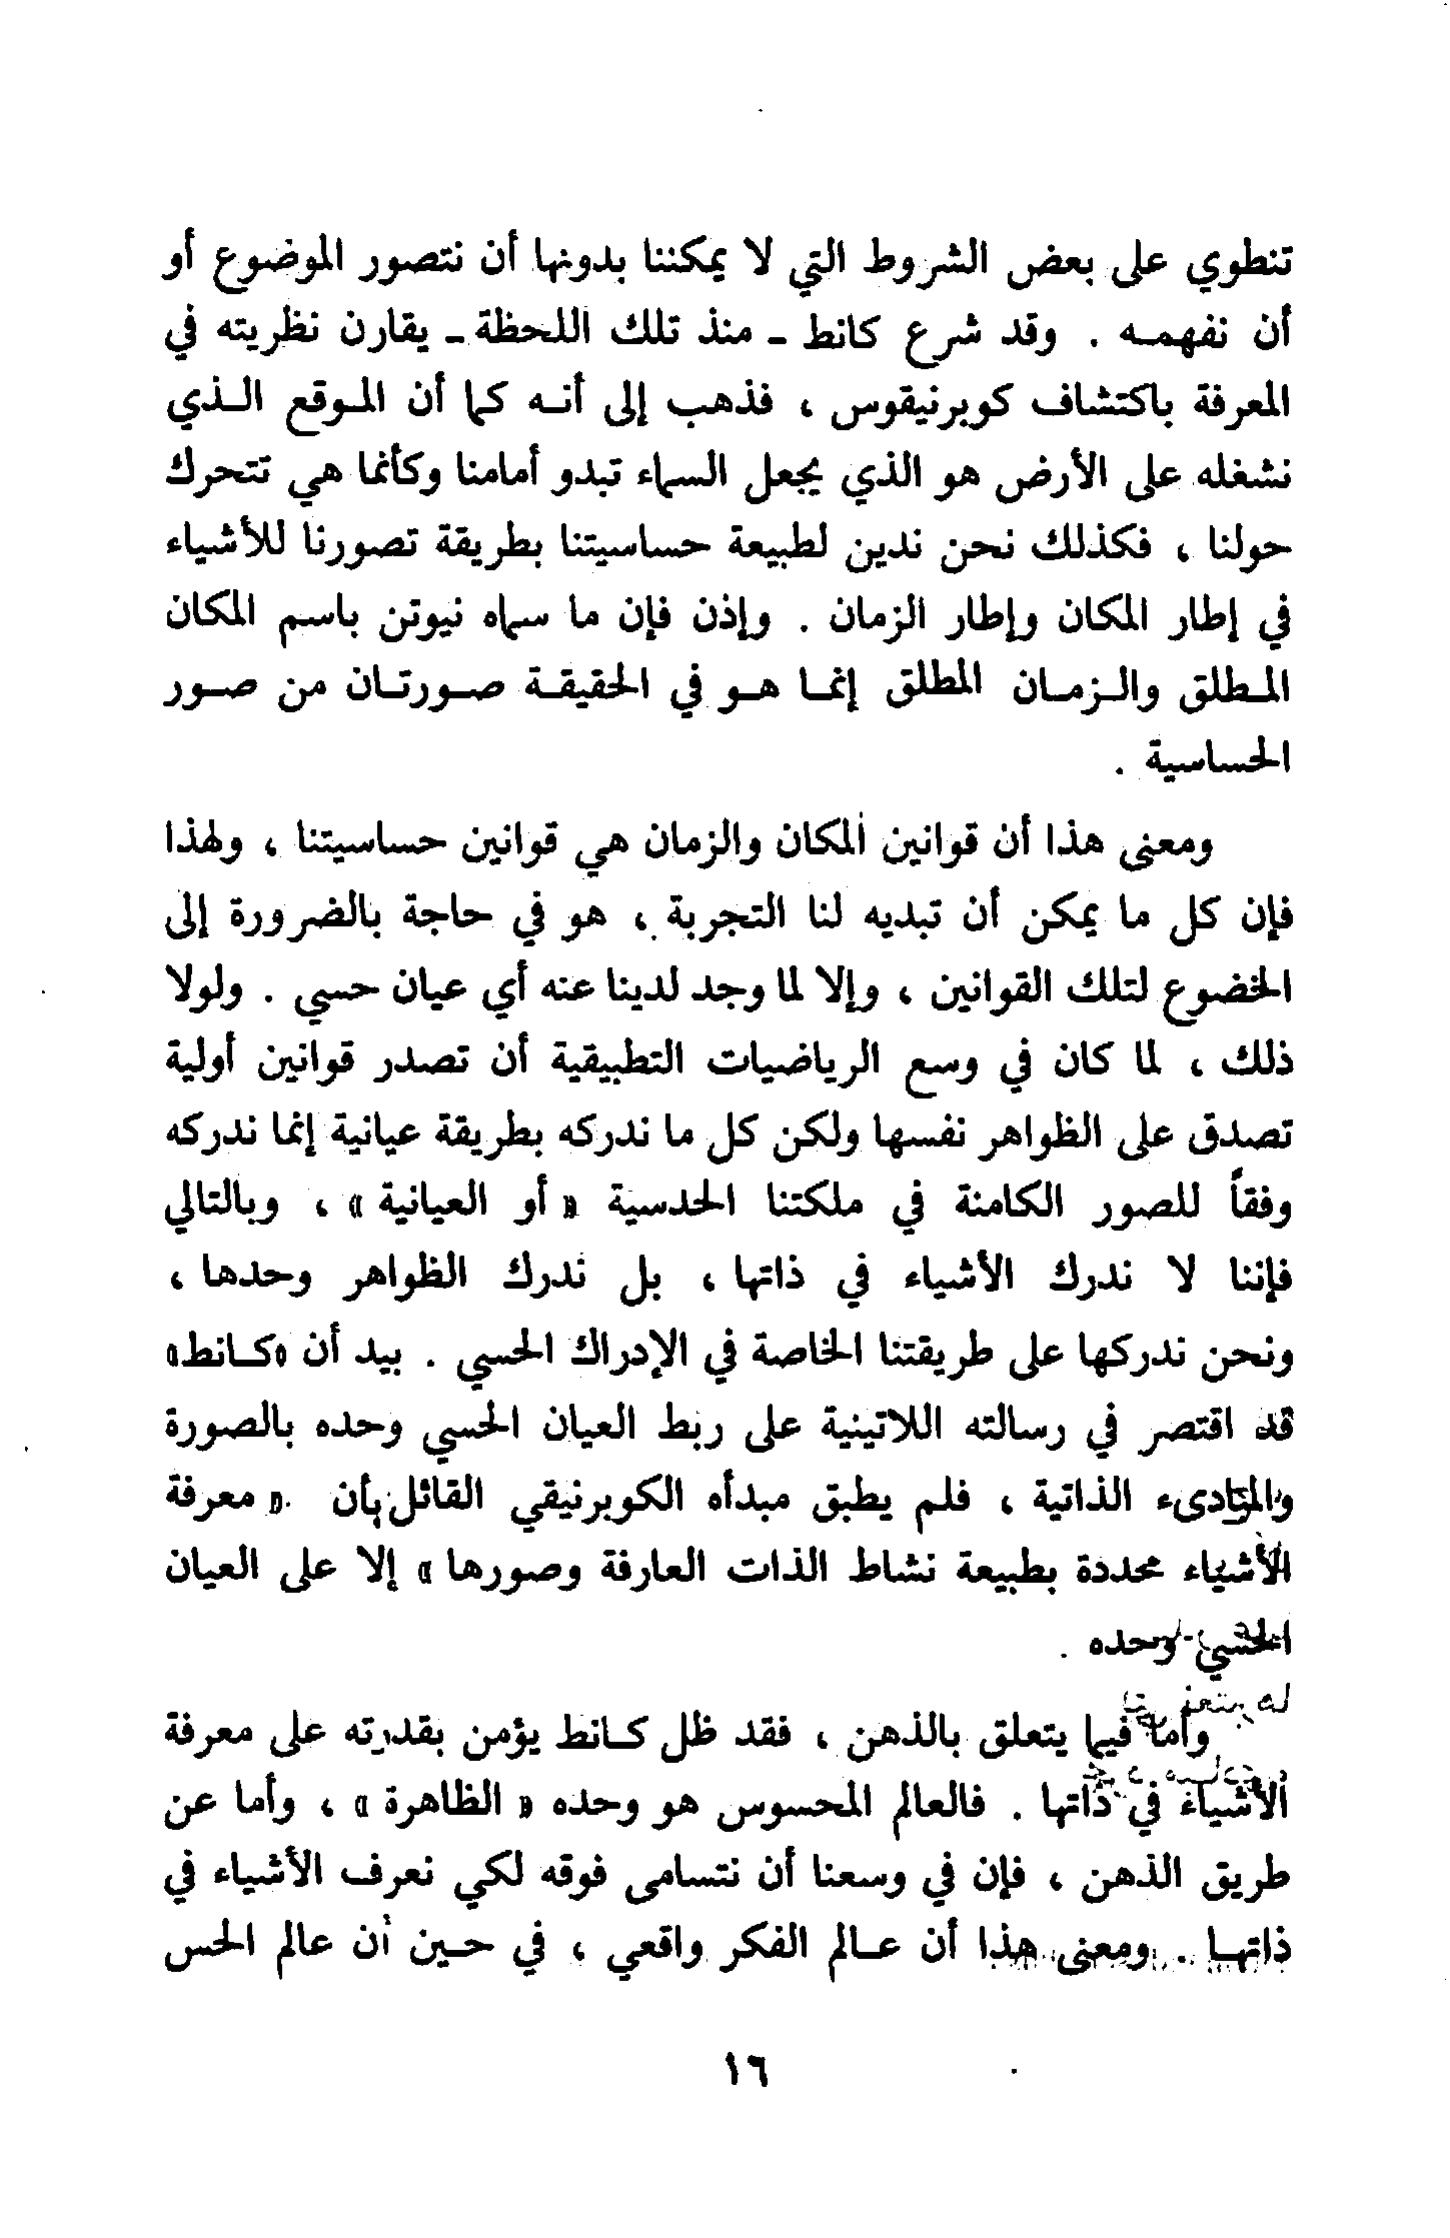 تنطوي على بعض الشروط التي لا يمكننا بدونها أن نتصور الموضوع أو
أن نفهمـه . وقد شرع كانط ـ منذ تلك اللحظة ـ يقارن نظريته في
المعرفة باكتشاف كوبرنيقوس ، فذهب إلى أنـه كما أن المـوقع الـذي
نشغله على الأرض هو الذي يجعل السماء تبدو أمامنا وكأنما هي تتحرك
حولنا ، فكذلك نحن ندين لطبيعة حساسيتنا بطريقة تصورنا للأشياء
في إطار المكان وإطار الزمان . وإذن فإن ما سماه نيوتن باسم المكان
المـطلق والـزمـان المطلق إنمـا هـو في الحقيقـة صـورتـان من صـور
الحساسية .
ومعنى هذا أن قوانين المكان والزمان هي قوانين حساسيتنا ، ولهذا
فإن كل ما يمكن أن تبديه لنا التجربة ، هو في حاجة بالضرورة إلى
الخضوع لتلك القوانين ، وإلا لما وجد لدينا عنه أي عيان حسي . ولولا
ذلك ، لما كان في وسع الرياضيات التطبيقية أن تصدر قوانين أولية
تصدق على الظواهر نفسها ولكن كل ما ندركه بطريقة عيانية إنما ندركه
وفقاً للصور الكامنة في ملكتنا الحدسية « أو العيانية » ، وبالتالي
فإننا لا ندرك الأشياء في ذاتها ، بل ندرك الظواهر وحدها ،
ونحن ندركها على طريقتنا الخاصة في الإدراك الحسي . بيد أن «كـانط»
قد اقتصر في رسالته اللاتينية على ربط العيان الحسي وحده بالصورة
والمبادىء الذاتية ، فلم يطبق مبدأه الكوبرنيقي القائل بأن « معرفة
الأشياء محددة بطبيعة نشاط الذات العارفة وصورها » إلا على العيان
الحسي وحده .
وأما فيما يتعلق بالذهن ، فقد ظل كـانط يؤمن بقدرته على معرفة
الأشياء في ذاتها . فالعالم المحسوس هو وحده « الظاهرة » ، وأما عن
طريق الذهن ، فإن في وسعنا أن نتسامى فوقه لكي نعرف الأشياء في
ذاتهـا . ومعنى هذا أن عـالم الفكر واقعي ، في حـين أن عالم الحس
١٦